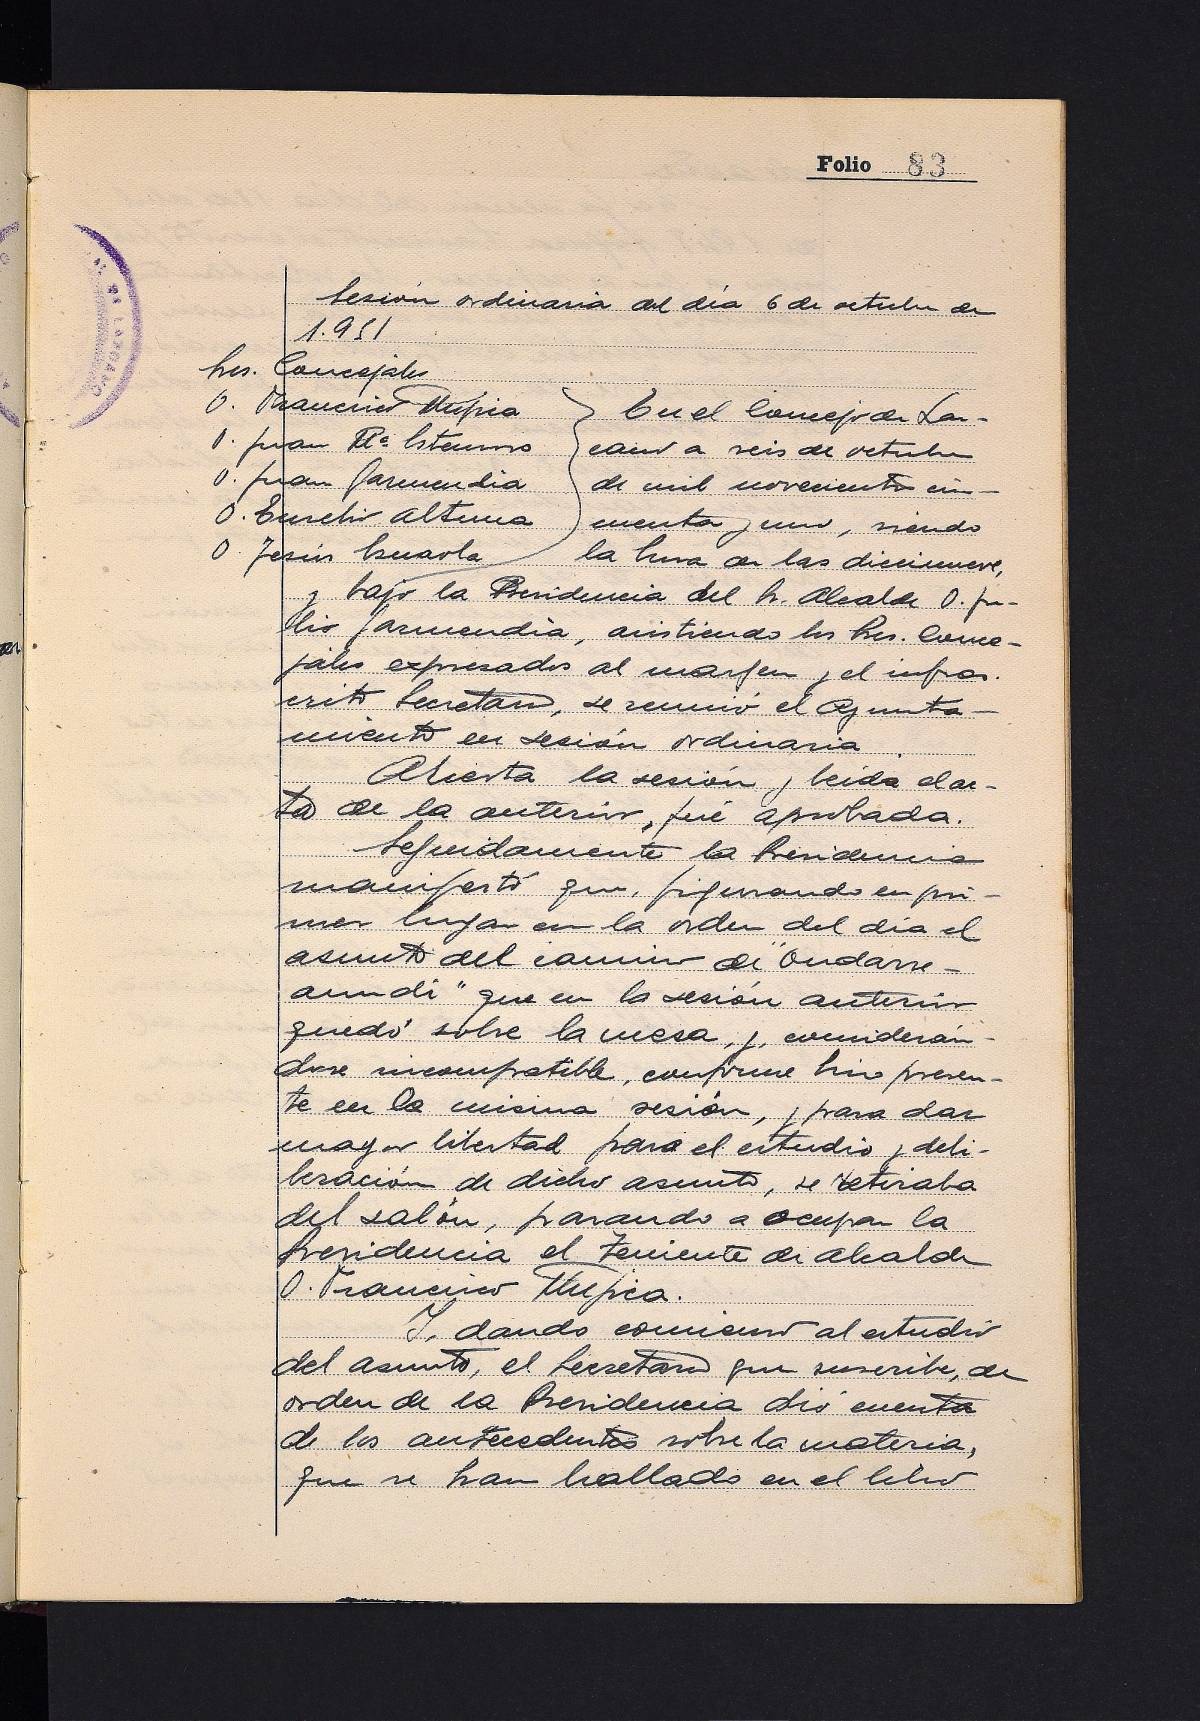 Folio 83
Sesión ordinaria del día 6 de octubre de
1.951
Sres. Concejales
D. Francisco Mujica
D. Juan Mª Estensoro
D. Juan Garmendia
D. Eusebio Altuna
D. Jesús
En el Concejo de Laz-
cano a seis de octubre
de mil novecientos cin-
cuenta y uno, siendo
la hora de las diecinueve,
y bajo la Presidencia del Sr. Alcalde D. Ju-
lio Garmendia, asistiendo los Sres. Conce-
jales expresados al margen y el infras-
crito Secretario, se reunió el Ayunta-
miento en sesión ordinaria.
Abierta la sesión y leida el ac-
ta de la anterior, fué aprobada.
Seguidamente la Presidencia
manifestó que, figurando en pri-
mer lugar en la orden del día el
asunto del camino de "Ondarre-
aundi" que en la sesión anterior
quedó sobre la mesa, y, considerán-
dose incompatible, conforme hizo presen-
te en la misma sesión, y para dar
mayor libertad para el estudio y deli-
beración de dicho asunto, se retiraba
del salón, pasando a ocupar la
Presidencia el Teniente de Alcalde
D. Francisco Mujica.
Y, dando comienzo al estudio
del asunto, el Secretario que suscribe, de
orden de la Presidencia dió cuenta
de los antecedentes sobre la materia,
que se han hallado en el libro